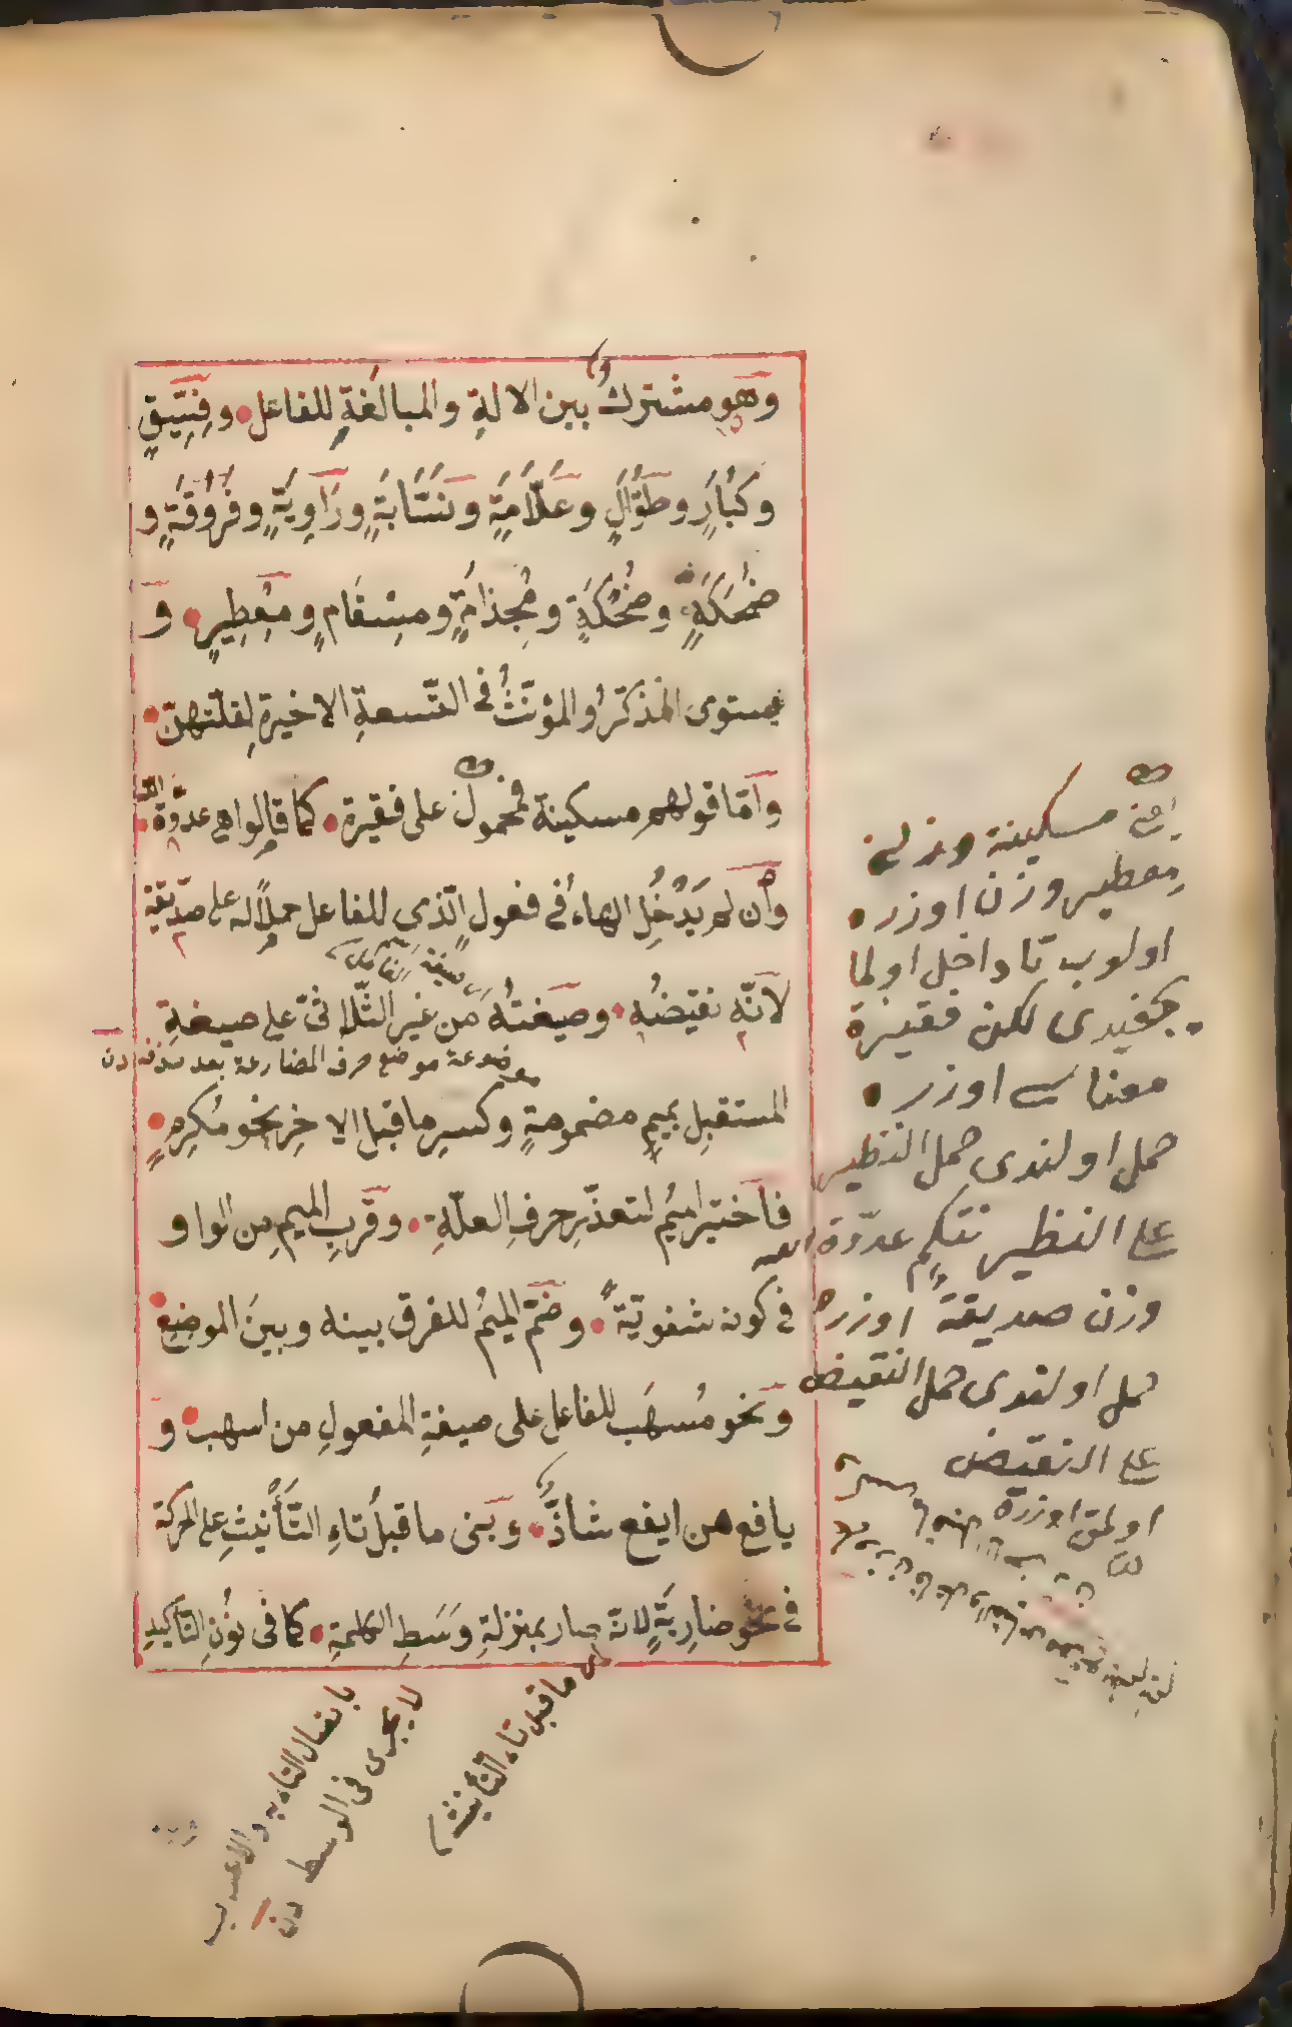 وهو مشترك بين الالة والمبالغة للفاعل وفسّيق
وكبار وطوّال وعلّامة ونسّابة وراوية وفروقة و
ضحكة وضحكة ومجذامة ومسقام ومعطير و
يستوى المذكر والمؤنث فى التسعة الاخيرة لقلتهن
واما قولهم مسكينة فمحمول على فقيرة كما قالوا هى عدوّة الله
وان لم يدخل الهاء فى فعول الذى للفاعل حملا له على صديقة
لانّه نقيضه وصيغته من غير الثلاثى على صيغة
موضوعة موضع حرف المضارعة بعد حذفه
المستقبل بميم مضمومة وكسر ما قبل الاخر نحو مكرم
فاختير الميم لتعذر حرف العلة وقرب الميم من الواو
فى كونه شفوية وضم الميم للفرق بينه وبين الموضع
ونحو مسهب للفاعل على صيغة المفعول من اسهب و
يافع من ايفع شاذ وبنى ما قبل تاء التأنيث على الحركة
فى نحو ضاربة لانه صار بمنزلة وسط الكلمة كما فى نون التأكيد
مسكينة وزنى
معطير وزن اوزره
اولوب تا داخل اولما
لكن فقيرة
معناسى اوزره
حمل اولندى حمل النظير
على النظير عدوّة الله
وزن صديقة اوزره
حمل اولندى حمل النقيض
على النقيض
اولمق اوزره
ما قبل تاء التأنيث
لا يجرى فى الوسط
باتصال التاء به والاعراب